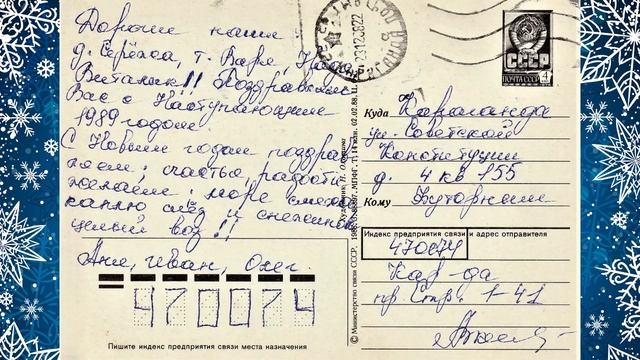 Дорогие наши
д. Серёжа, т. Валя, Надя
Виталик!! Поздравляем
Вас с Наступающим
1989 годом.
С Новым годом поздрав
ляем, счастья, радости
желаем: море смеха,
каплю слёз и снежинок
целый воз!!
Аня, Иван, Олег.
470074
Пишите индекс предприятия связи места назначения
© Министерство связи СССР.
Художник
СССР
ПОЧТА СССР
4
Куда Караганда
ул. Советской
Конституции
д. 4 кв 155
Кому Буторины
Индекс предприятия связи и адрес отправителя
470074
Кар-да
пр. Стр. 1-41